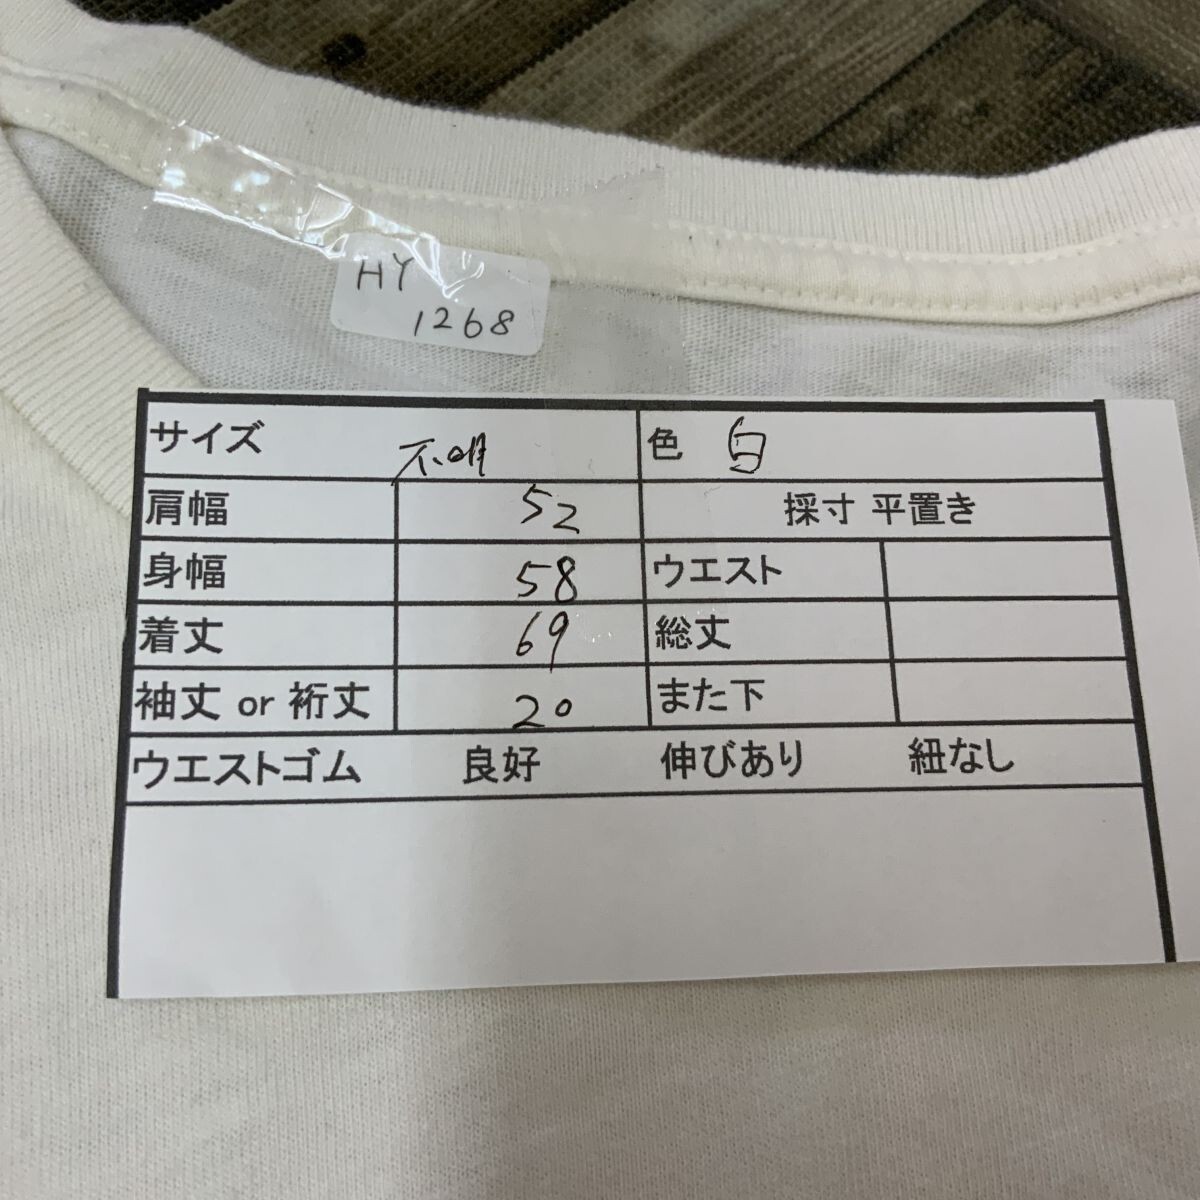 HY
1268
サイズ 不明 色 白
肩幅 52 採寸 平置き
身幅 58 ウエスト
着丈 69 総丈
袖丈 or 裄丈 20 また下
ウエストゴム 良好 伸びあり 紐なし